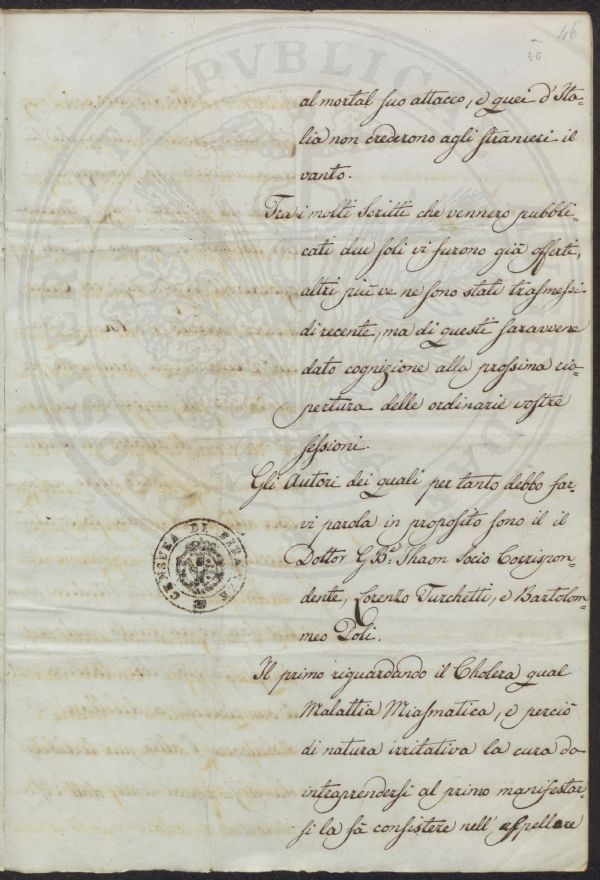 46
46
al mortal suo attacco, e quei d'Ita-
lia non crederono agli stranieri il
vanto.
Tra i molti Scritti che vennero pubbli-
cati due soli vi furono già offerti,
altri più ve ne sono stati trasmessi
di recente, ma di questi saravvene
dato cognizione alla prossima ria-
pertura delle ordinarie vostre
sessioni.
Gli Autori dei quali per tanto debbo far-
vi parola in proposito sono il il
Dottor G. Bta. Thaon Socio Corrispon-
dente, Lorenzo Turchetti, e Bartolom-
meo Poli.
Il primo riguardando il Cholera qual
Malattia Miasmatica, e perciò
di natura irritativa la cura da
intraprendersi al primo manifestar-
si la fà consistere nell'appellare
CENSURA DI